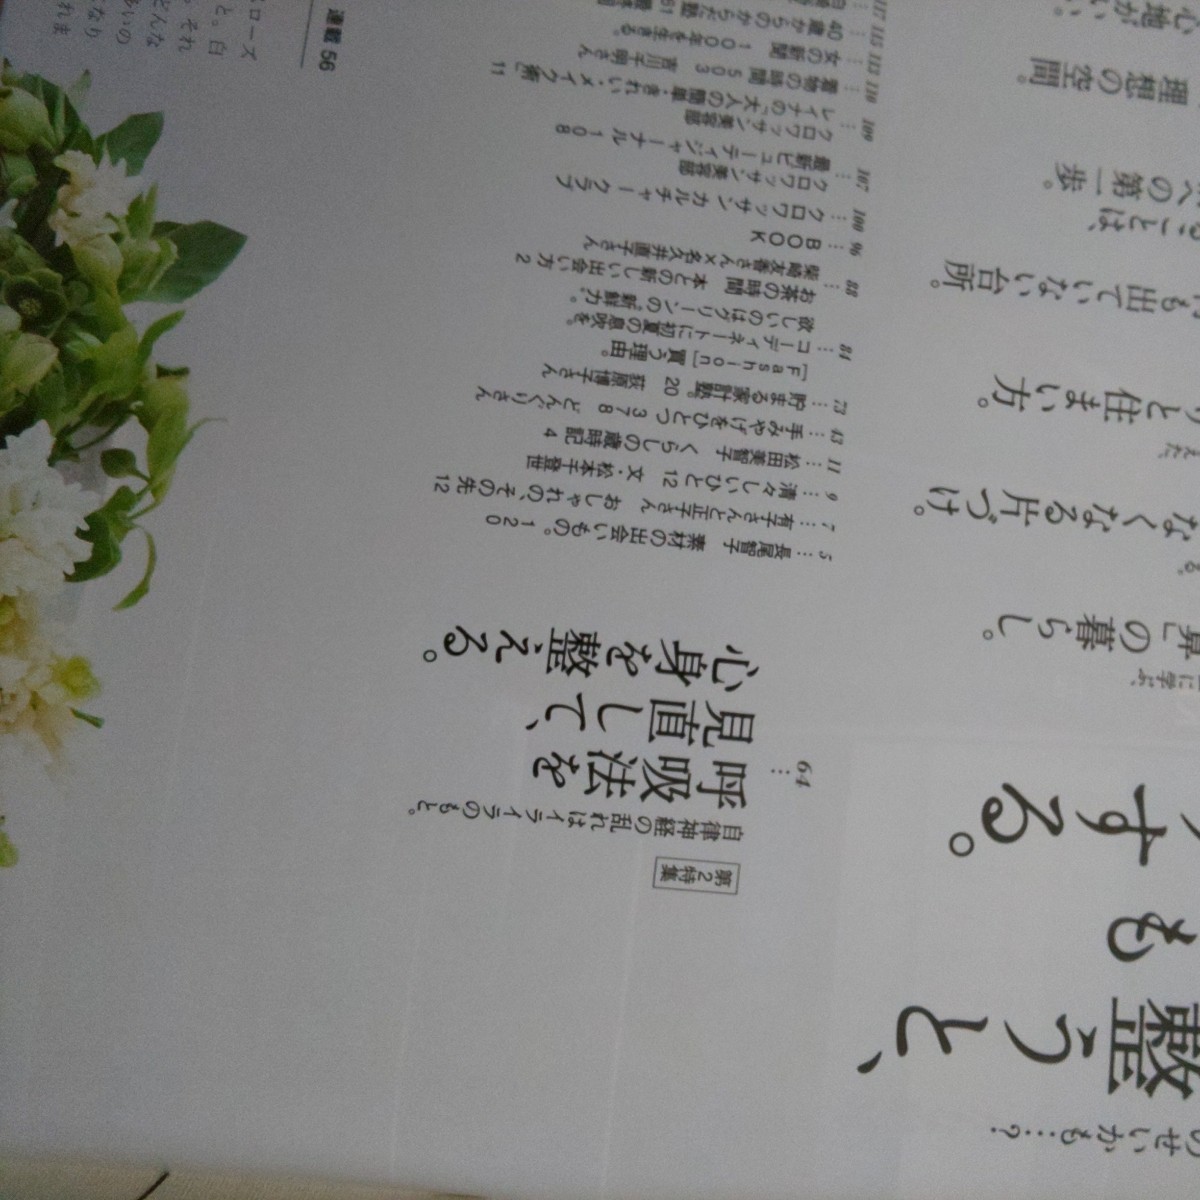 のせいかも…？
整うと、
も
する。
に学ぶ、
の暮らし。
なくなる片づけ。
りと住まい方。
も出ていない台所。
ことは、
への第一歩。
理想の空間。
心地がいい。
第2特集
自律神経の乱れはイライラのもと。
64… 呼吸法を
見直して、
心身を整える。
5…長尾智子　素材の出会いもの。120
7…有子さんと正子さん　おしゃれの、その先12
9…清々しいひと12　文・松本千登世
11…松田美智子　くらしの歳時記4
43…手みやげをひとつ378　どんぐりさん
73…貯まる家計塾。20　荻原博子さん
［Fashion］買う理由。
84…コーディネートに初夏の息吹を。
欲しいのはグリーンの“新鮮力”。
お茶の時間　本との新しい出会い方2
88…柴崎友香さん×名久井直子さん
96…BOOK
100…クロワッサン カルチャークラブ
クロワッサン美容部
107…最新ビューティジャーナル108
クロワッサン美容部
109…レイナの“大人の簡単・きれい・メイク術”11
110…着物の時間503　吉川千明さん
113…女の新聞　100年を生きる。
115…40歳からのからだ塾
117
連載56
ローズ
と。白
。それ
どんな
いの
なり
れま